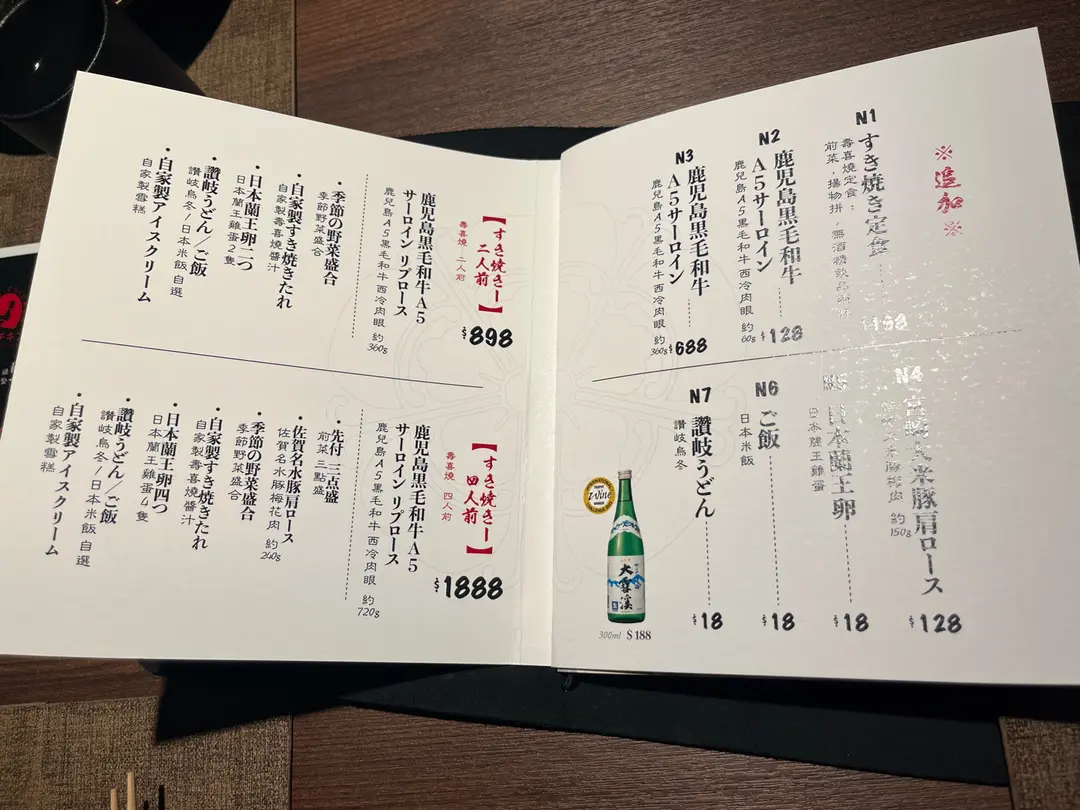 【すき焼き－
二人前】
壽喜燒 二人前
鹿児島黒毛和牛A5
サーロイン リブロース
鹿兒島A5黑毛和牛西冷肉眼 約360g
$898
・季節の野菜盛合
季節野菜盛合
・自家製すき焼きたれ
自家製壽喜燒醬汁
・日本蘭王卵二つ
日本蘭王雞蛋2隻
・讃岐うどん／ご飯
讚岐烏冬/日本米飯 自選
・自家製アイスクリーム
自家製雪糕
【すき焼き－
四人前】
壽喜燒 四人前
鹿児島黒毛和牛A5
サーロイン リブロース
鹿兒島A5黑毛和牛西冷肉眼 約720g
$1888
・先付 三点盛
前菜三點盛
・佐賀名水豚肩ロース
佐賀名水豚梅花肉 約260g
・季節の野菜盛合
季節野菜盛合
・自家製すき焼きたれ
自家製壽喜燒醬汁
・日本蘭王卵四つ
日本蘭王雞蛋4隻
・讃岐うどん／ご飯
讚岐烏冬/日本米飯 自選
・自家製アイスクリーム
自家製雪糕
※追加※
N1
すき焼き定食
壽喜燒定食：
前菜，揚物拼，無酒精飲品
N2
鹿児島黒毛和牛
A5サーロイン
鹿兒島A5黑毛和牛西冷肉眼 約60g
$128
N3
鹿児島黒毛和牛
A5サーロイン
鹿兒島A5黑毛和牛西冷肉眼 約360g
$688
N4
豚肩ロース
約150g
$128
日本蘭王卵
日本蘭王雞蛋
$18
N6
ご飯
日本米飯
$18
N7
讃岐うどん
讚岐烏冬
$18
wine
大雪渓
300ml $188